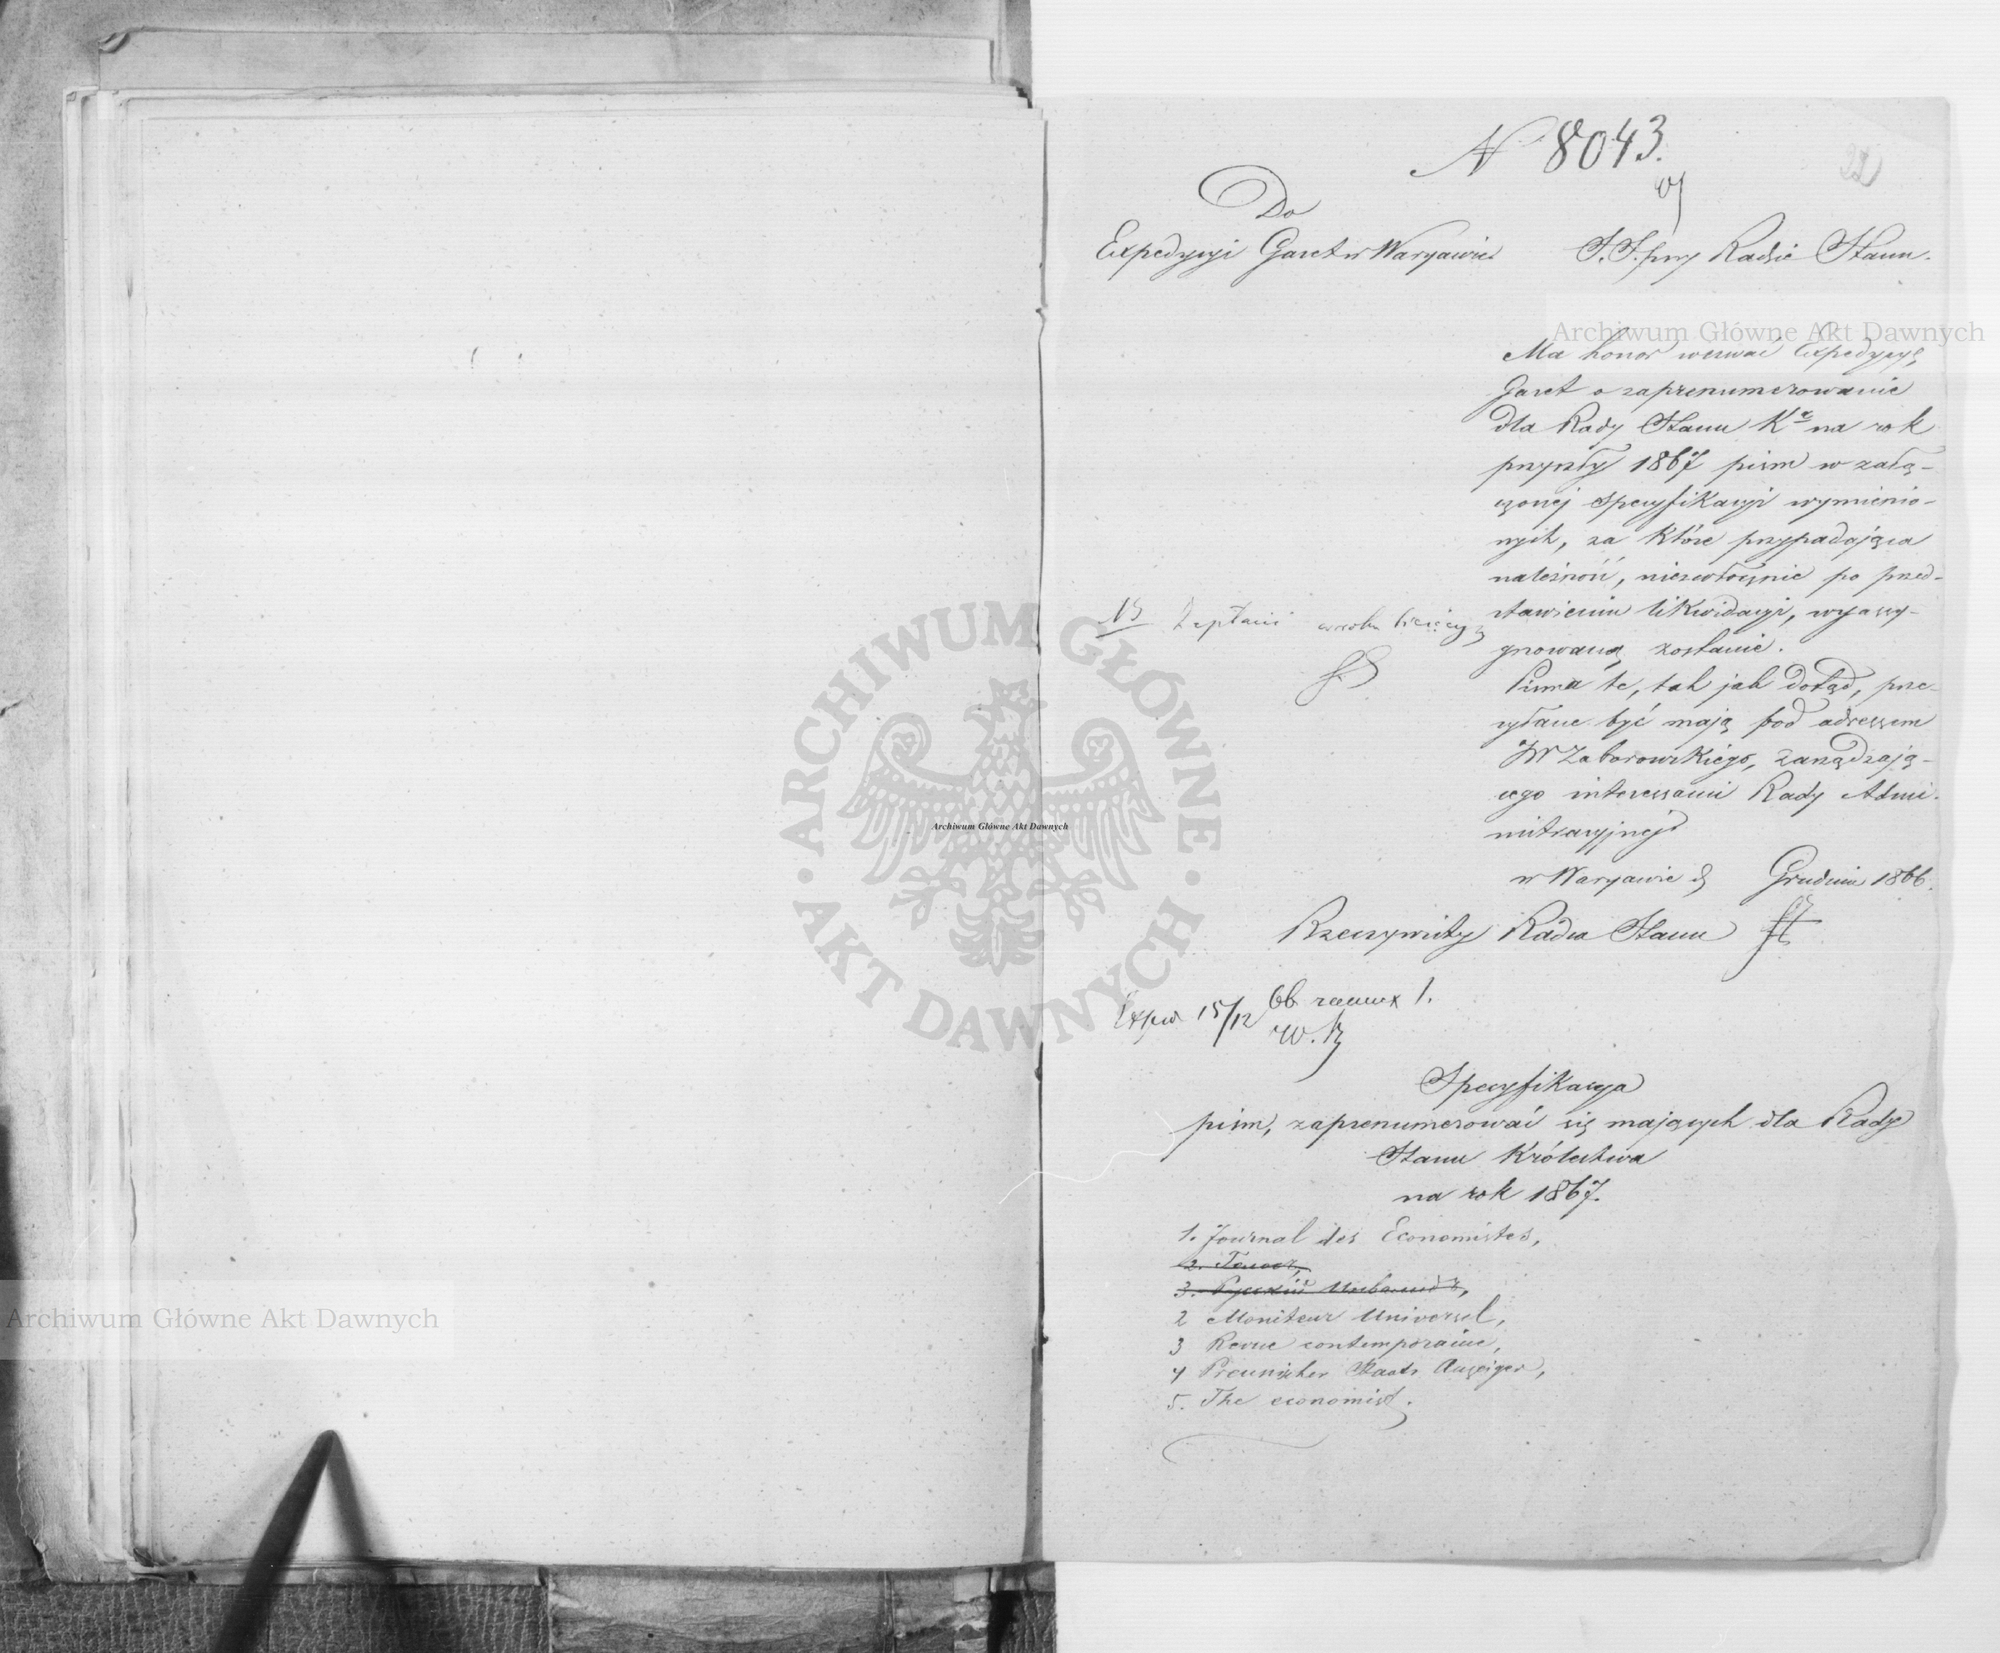 N 8043.
22
Do
Expedycyi Gazet w Warszawie
S. S. przy Radzie Stanu.
Ma honor wezwać Expedycyę
Gazet o zaprenumerowanie
dla Rady Stanu Kr na rok
przyszły 1867 pism w załą-
czonej specyfikacyi wymienio-
nych, za które przypadająca
należność, niezwłocznie po przed-
stawieniu likwidacyi, wyassy-
gnowaną zostanie.
Pisma te, tak jak dotąd, prze-
syłane być mają pod adressem
JW Zaborowskiego, zarządzają-
cego interessami Rady Admi-
nistracyjnej
w Warszawie d Grudnia 1866.
NB Zapłacić w roku bieżącym
Rzeczywisty Radca Stanu
Exped 15/12 66 1.
Specyfikacya
pism, zaprenumerować się mających dla Rady
Stanu Królestwa
na rok 1867.
1. Journal des Economistes,
2. Голосъ,
3. Русскій Инвалидъ,
2 Moniteur Universel,
3 Revue contemporaine,
4 Preussischer Staats Anzeiger,
5. The economist.
Archiwum Główne Akt Dawnych
Archiwum Główne Akt Dawnych
Archiwum Główne Akt Dawnych
ARCHIWUM GŁÓWNE
AKT DAWNYCH